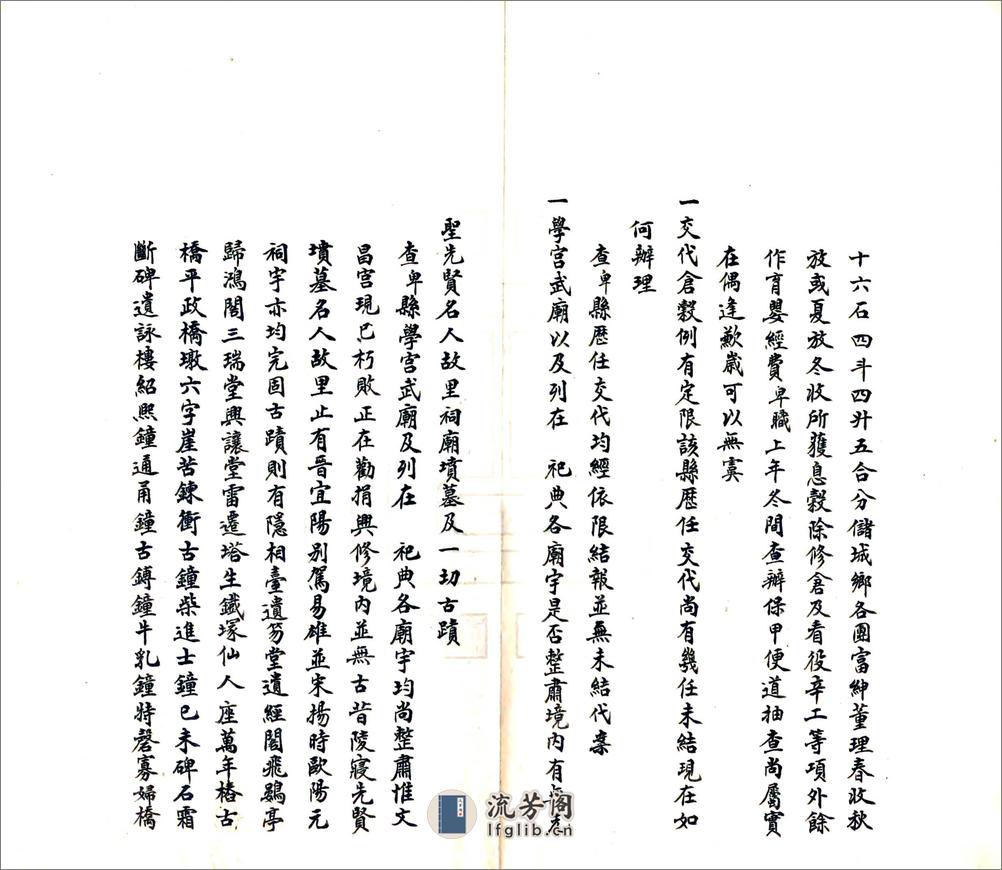 十六石四斗四升五合分儲城鄉各團富紳董理春收秋
放或夏放冬收所獲息穀除修倉及看役辛工等項外餘
作育嬰經費卑職上年冬間查辦保甲便道抽查尚屬實
在偶逢歉歲可以無虞
一交代倉穀例有定限該縣歷任交代尚有幾任未結現在如
何辦理
查卑縣歷任交代均經依限結報並無未結代案
一學宮武廟以及列在 祀典各廟宇是否整肅境內有
聖先賢名人故里祠廟墳墓及一切古蹟
查卑縣學宮武廟及列在 祀典各廟宇均尚整肅惟文
昌宮現已朽敗正在勸捐興修境內並無古昔陵寢先賢
墳墓名人故里止有晉宜陽別駕易雄並宋揚時歐陽元
祠宇亦均完固古蹟則有隱相臺遺笏堂遺經閣飛鷃亭
歸鴻閣三瑞堂興讓堂雷遷塔生鐵塚仙人座萬年樁古
橋平政橋墩六字崖苦鍊衝古鐘柴進士鐘巳未碑石霜
斷碑遺詠樓紹熙鐘通甬鐘古鎛鐘牛乳鐘特磬寡婦橋
流芳阁
lfglib.cn